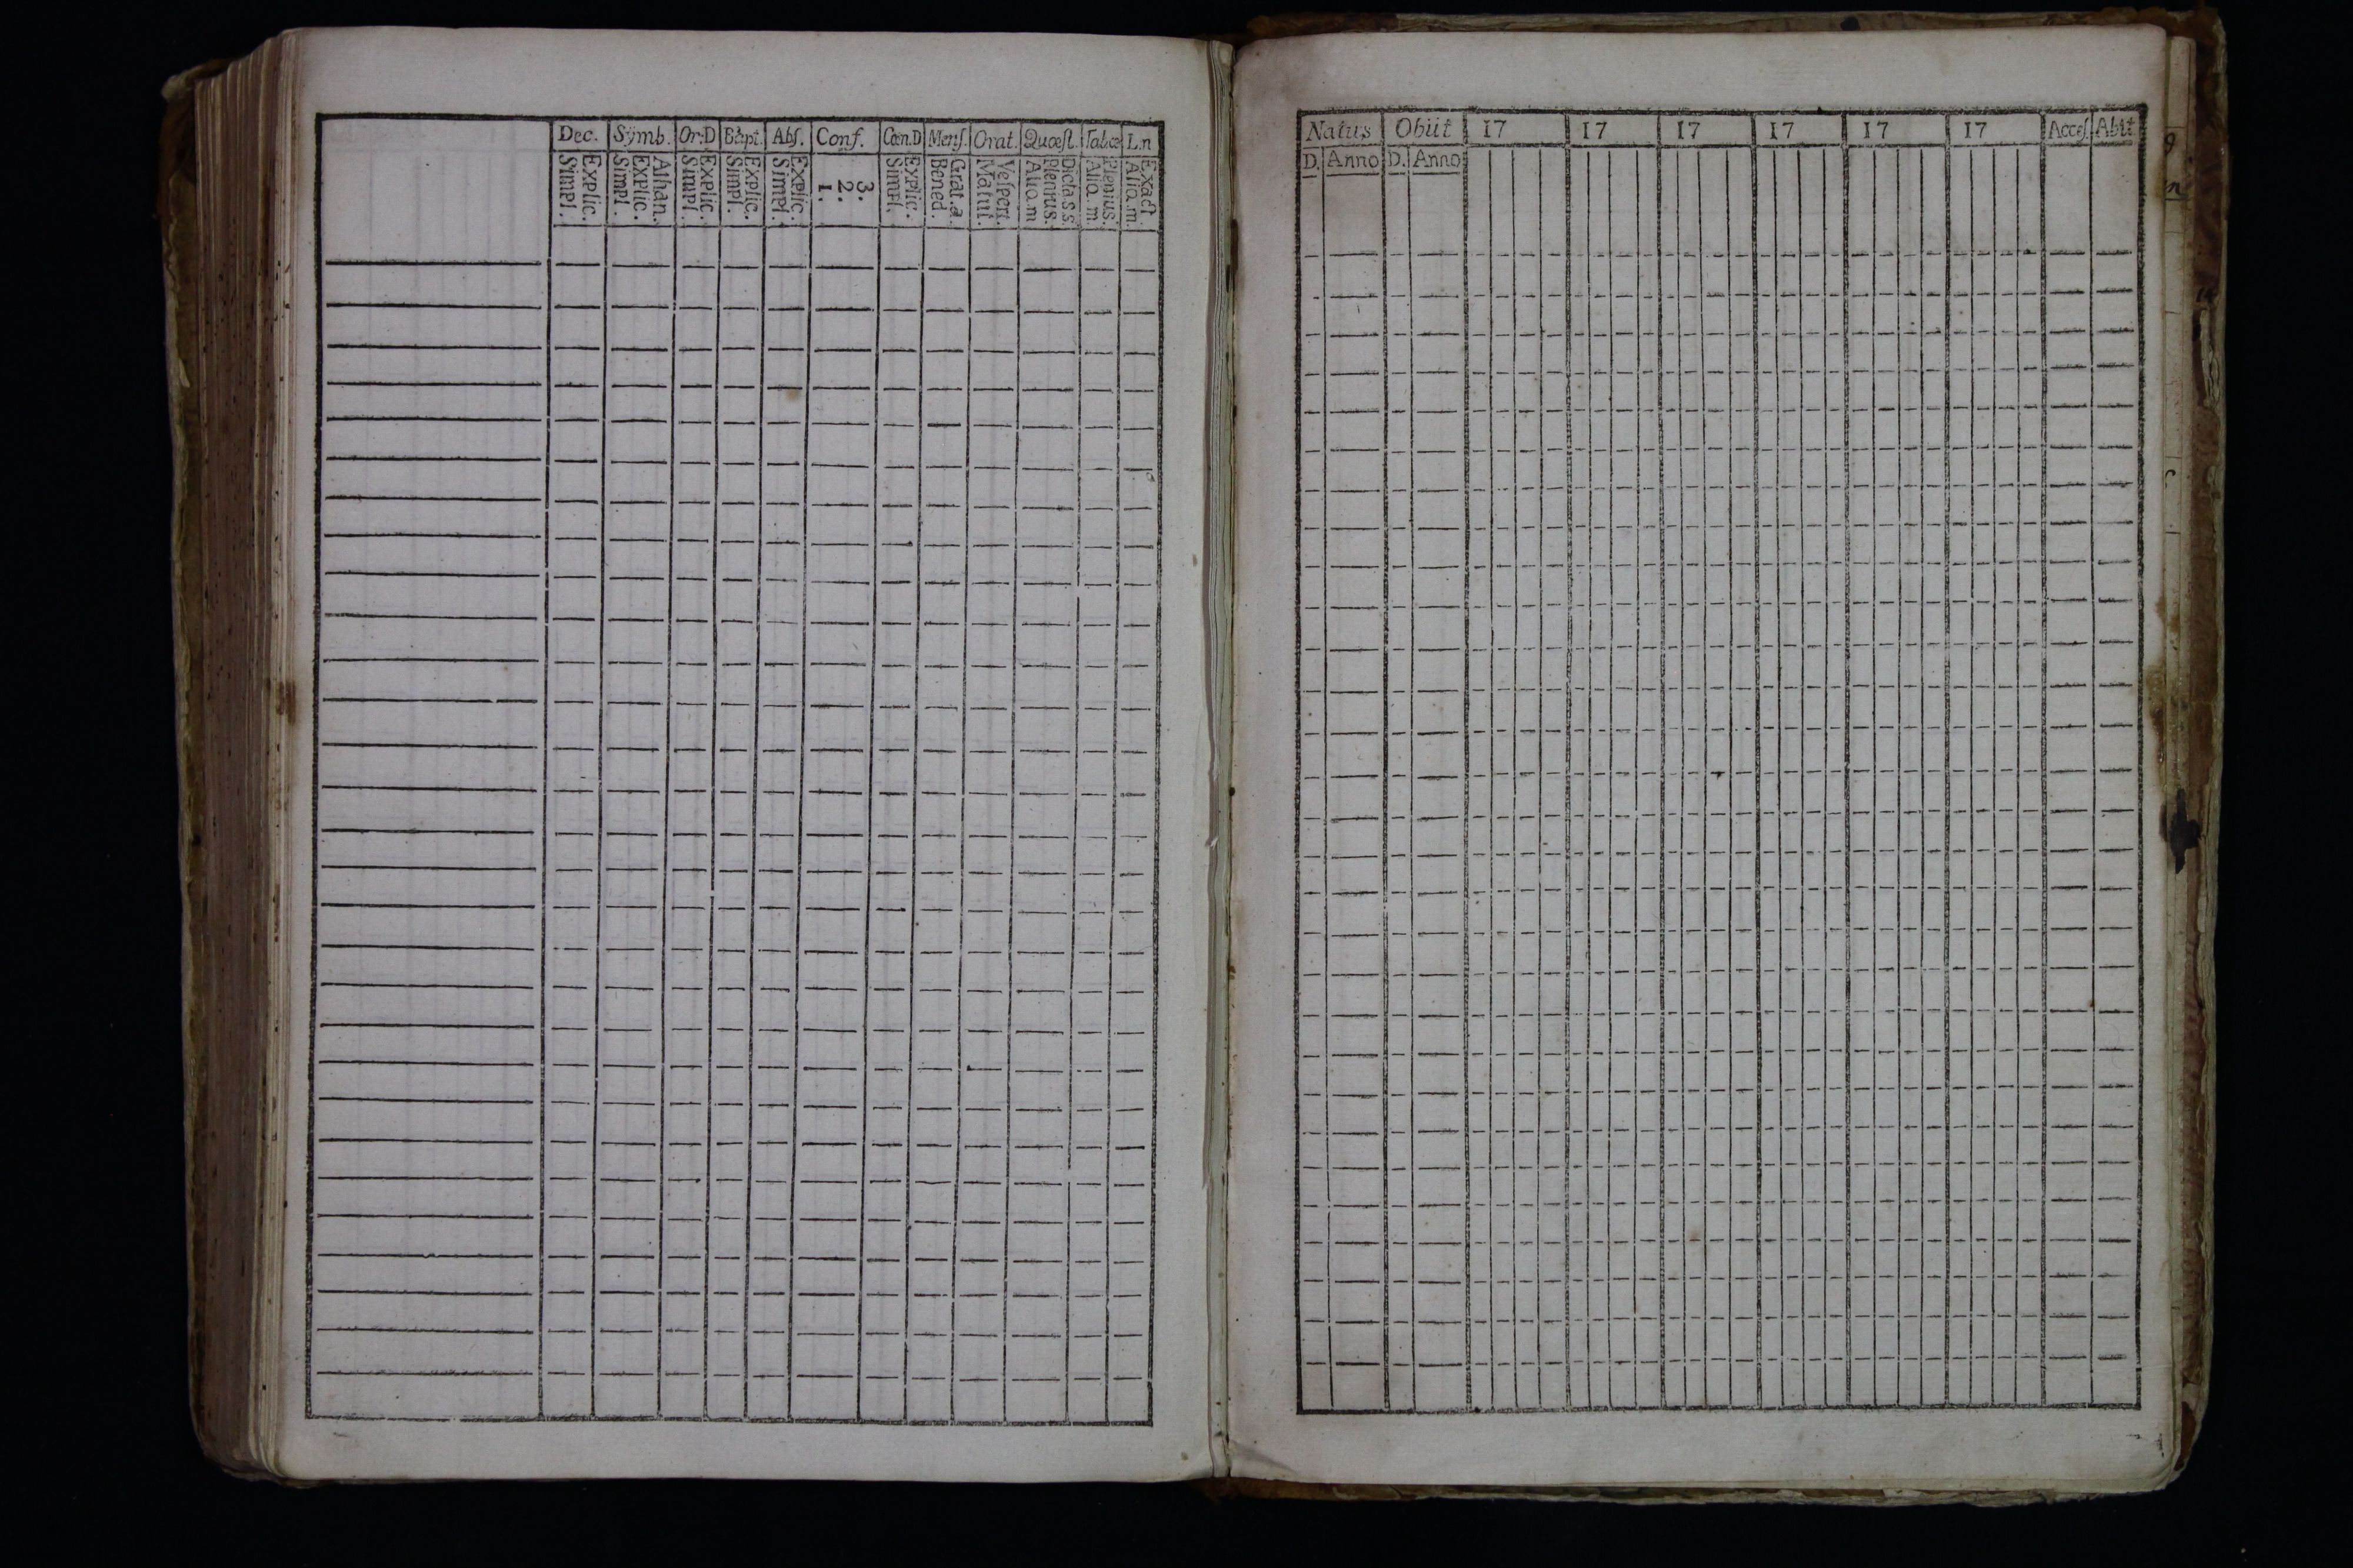 Dec. Sÿmb. Or:D Bapt. Abſ. Conf. Cœn.D Menſ. Orat. Quæſt. Tabœ L.n
Simpl. Explic. Simpl. Explic. Athan. Simpl. Explic. Simpl. Explic. Simpl. Explic. 1. 2. 3. Simpl. Explic. Bened. Grat.a. Matut. Veſpert. Aliq.m Plenius. Dicta.s.s Aliq.m. Plenius. Aliq.m. Exact.
Natus Obiit 17 17 17 17 17 17 Acceſ. Abit
D. Anno D. Anno